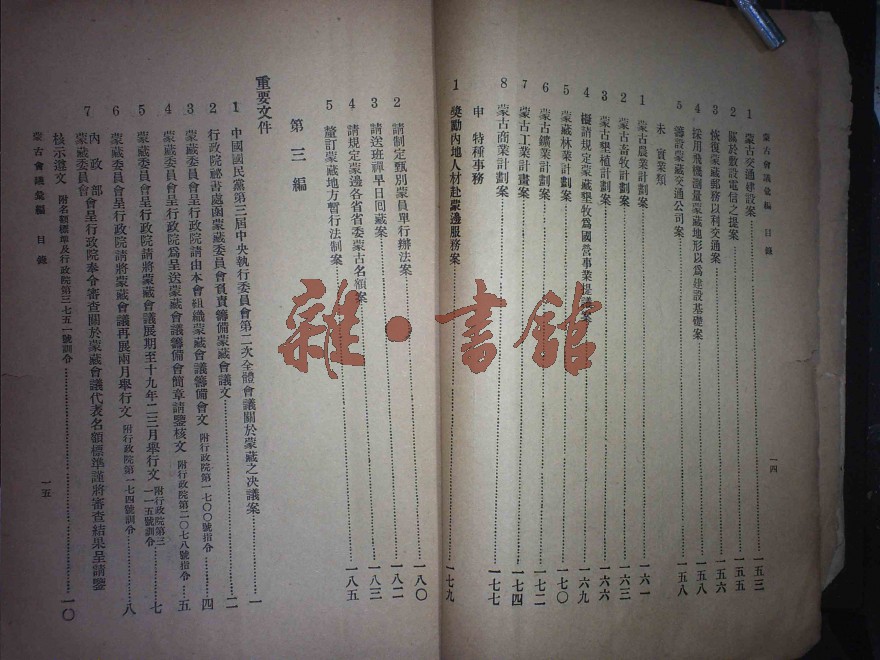 蒙古會議彙編　目錄
1　蒙古交通建設案…………一五三
2　關於敷設電信之提案…………一五五
3　恢復蒙藏郵務以利交通案…………一五六
4　採用飛機測量蒙藏地形以爲建設基礎案…………一五八
5　籌設蒙藏交通公司案…………一五八
未　實業類
1　蒙古農業計劃案…………一六一
2　蒙古畜牧計劃案…………一六三
3　蒙古墾植計劃案…………一六六
4　擬請規定蒙藏墾牧爲國營事業提議案…………一六九
5　蒙藏林業計劃案…………一七〇
6　蒙古鑛業計劃案…………一七二
7　蒙古工業計畫案…………一七四
8　蒙古商業計劃案…………一七七
申　特種事務
1　獎勵內地人材赴蒙邊服務案…………一七九
一四
2　請制定甄別蒙員單行辦法案…………一八〇
3　請送班禪早日回藏案…………一八二
4　請規定蒙邊各省省委蒙古名額案…………一八三
5　釐訂蒙藏地方暫行法制案…………一八五
第三編
重要文件
1　中國國民黨第三屆中央執行委員會第二次全體會議關於蒙藏之決議案…………一
2　行政院祕書處函蒙藏委員會負責籌備蒙藏會議文…………二
3　蒙藏委員會呈行政院請由本會組織蒙藏會議籌備會文　附行政院第一七〇〇號指令…………四
4　蒙藏委員會呈行政院爲呈送蒙藏會議籌備會簡章請鑒核文　附行政院第二〇七八號指令…………五
5　蒙藏委員會呈行政院請將蒙藏會議展期至十九年二三月舉行文　附行政院第三一一五號訓令…………七
6　蒙藏委員會呈行政院請將蒙藏會議再展兩月舉行文　附行政院第一七四號訓令…………八
7　內政部蒙藏委員會會呈行政院奉令審查關於蒙藏會議代表名額標準謹將審查結果呈請鑒
核示遵文　附名額標準及行政院第三七五一號訓令…………一〇
蒙古會議彙編　目錄
一五
雜·書館